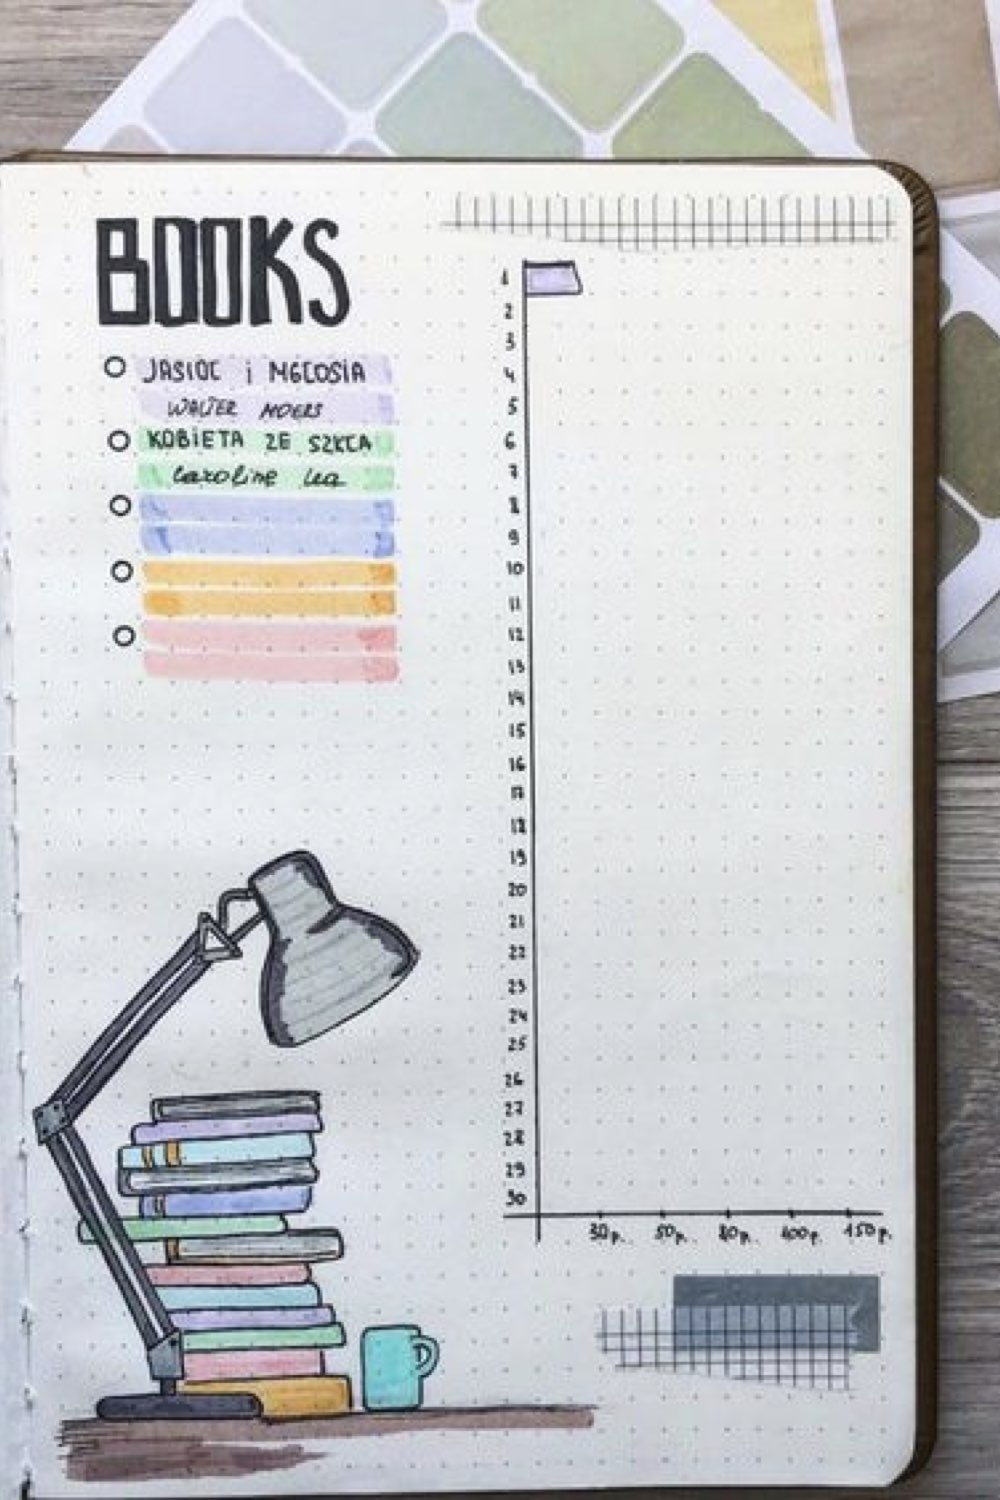 BOOKS
JASIOŁ i MGŁOSIA
WALTER MOERS
KOBIETA ZE SZKŁA
Caroline Lea
1
2
3
4
5
6
7
8
9
10
11
12
13
14
15
16
17
18
19
20
21
22
23
24
25
26
27
28
29
30
30p. 50p. 80p. 100p. 150p.